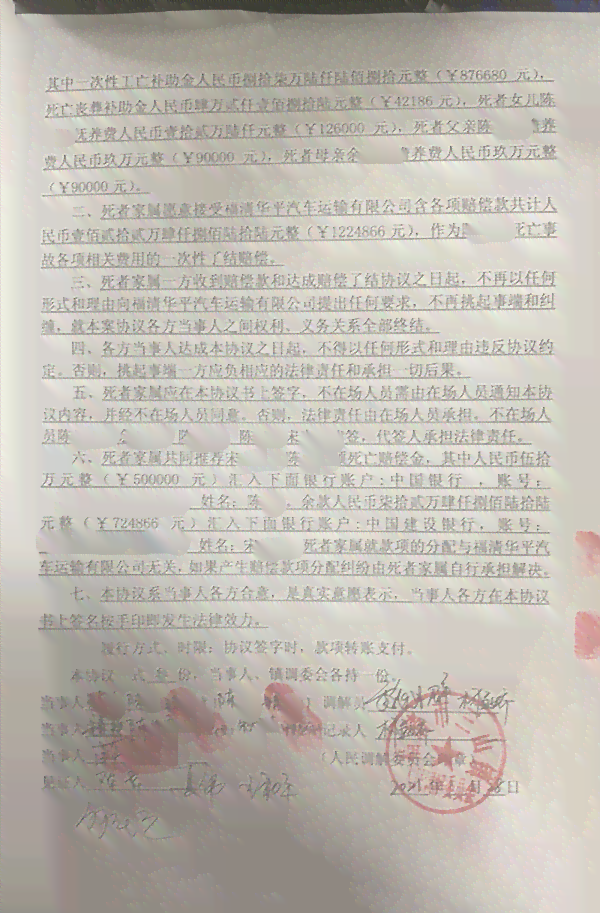 其中一次性工亡补助金人民币捌拾柒万陆仟陆佰捌拾元整（￥876680 元），
死亡丧葬补助金人民币肆万贰仟壹佰捌拾陆元整（￥42186 元），死者女儿陈
抚养费人民币壹拾贰万陆仟元整（￥126000 元），死者父亲陈 养
费人民币玖万元整（￥90000 元），死者母亲余 养费人民币玖万元整
（￥90000 元）。
二、死者家属愿意接受福清华平汽车运输有限公司含各项赔偿款共计人
民币壹佰贰拾贰万肆仟捌佰陆拾陆元整（￥1224866 元），作为 死亡事
故各项相关费用的一次性了结赔偿。
三、死者家属一方收到赔偿款和达成赔偿了结协议之日起，不再以任何
形式和理由向福清华平汽车运输有限公司提出任何要求，不再挑起事端和纠
缠，就本案协议各方当事人之间权利、义务关系全部终结。
四、各方当事人达成本协议之日起，不得以任何形式和理由违反协议约
定。否则，挑起事端一方应负相应的法律责任和承担一切后果。
五、死者家属应在本协议书上签字，不在场人员需由在场人员通知本协
议内容，并经不在场人员同意。否则，法律责任由在场人员承担。不在场人
员陈 陈 宋 签，代签人承担法律责任。
六、死者家属共同推荐宋 陈 领死亡赔偿金，其中人民币伍拾
万元整（￥500000 元）汇入下面银行账户：中国银行 ，账号：
姓名：陈 ，余款人民币柒拾贰万肆仟捌佰陆拾陆
元整（￥724866 元）汇入下面银行账户：中国建设银行，账号：
姓名：宋 死者家属就款项的分配与福清华平汽
车运输有限公司无关，如果产生赔偿款项分配纠纷由死者家属自行承担解决。
七、本协议系当事人各方合意，是真实意愿表示，当事人各方在本协议
书上签名按手印即发生法律效力。
履行方式、时限：协议签字时，款项转账支付。
本协议一式叁份，当事人、镇调委会各持一份。
当事人 调解员
当事人 记录人
当事人 （人民调解委员会印章）
见证人 2021年 月 日